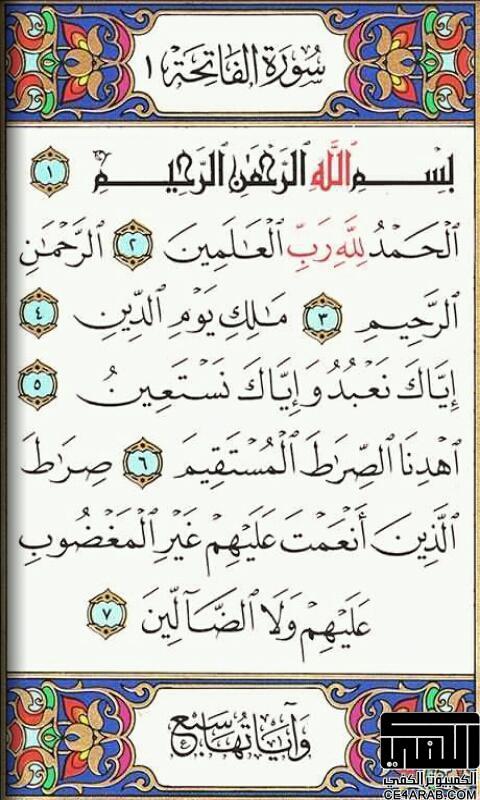 سُورَةُ الفَاتِحَة ١
بِسْمِ ٱللَّهِ ٱلرَّحْمَٰنِ ٱلرَّحِيمِ ١
ٱلْحَمْدُ لِلَّهِ رَبِّ ٱلْعَٰلَمِينَ ٢ ٱلرَّحْمَٰنِ
ٱلرَّحِيمِ ٣ مَٰلِكِ يَوْمِ ٱلدِّينِ ٤
إِيَّاكَ نَعْبُدُ وَإِيَّاكَ نَسْتَعِينُ ٥
ٱهْدِنَا ٱلصِّرَٰطَ ٱلْمُسْتَقِيمَ ٦ صِرَٰطَ
ٱلَّذِينَ أَنْعَمْتَ عَلَيْهِمْ غَيْرِ ٱلْمَغْضُوبِ
عَلَيْهِمْ وَلَا ٱلضَّآلِّينَ ٧
وَآيَاتُهَا سَبْع
الكفي
الكمبيوتر الكفي
CE4ARAB.COM